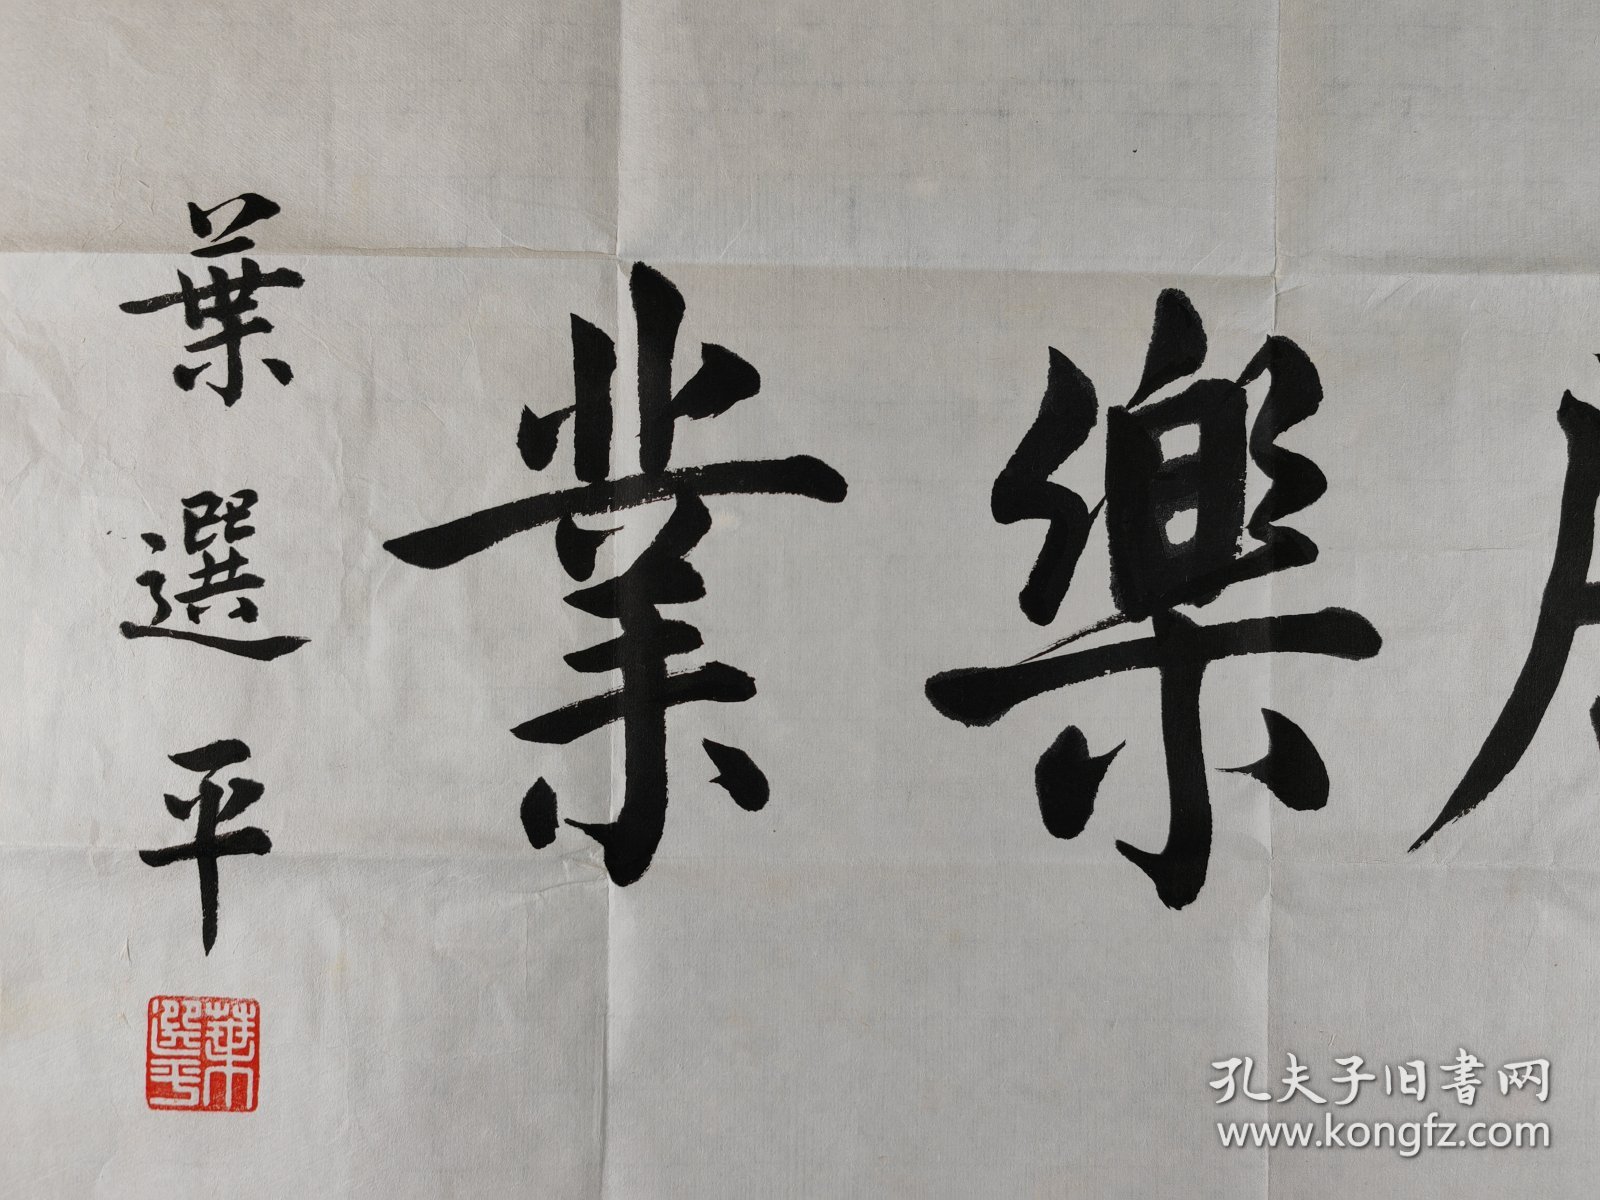 樂業
葉選平
葉選平
孔夫子旧書网
www.kongfz.com